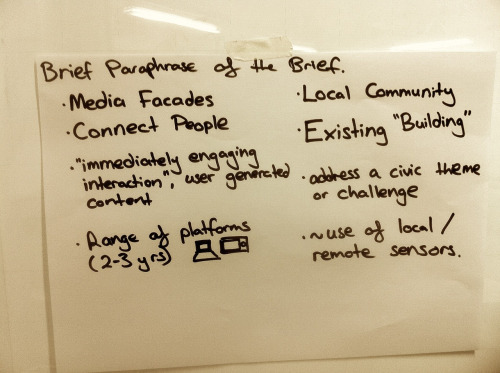 Brief Paraphrase of the Brief.
· Media Facades
· Connect People
· "immediately engaging
interaction", user generated
content
· Range of platforms
(2-3 yrs)
· Local Community
· Existing "Building"
· address a civic theme
or challenge
· ~use of local /
remote sensors.